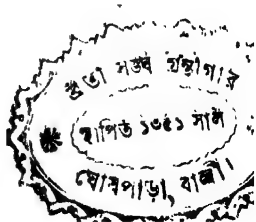 শুভা সঙ্ঘ গ্রন্থাগার
স্থাপিত ১৩৫১ সাল
ঘোষপাড়া, বালী।